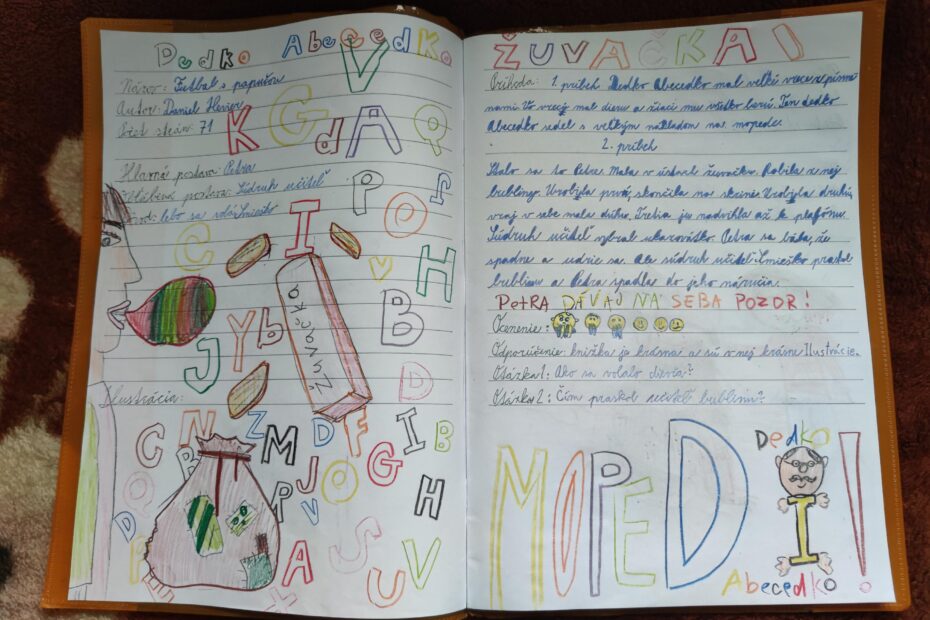 Dedko Abecedko
Názov: Futbal s papučou
Autor: Daniel Hevier
Počet strán: 71
Hlavná postava: Petra
Vedľajšia postava: Súdruh učiteľ
lebo sa volá Smieško
Žuvačka
Ilustrácia:
ŽUVAČKA!
Príhoda: 1. príbeh Dedko Abecedko mal veľké vrece s písme
nami. To vrecj mal dieru a žiaci mu všetko berú. Ten dedko
Abecedko sedel s veľkým nákladom na mopede.
2. príbeh
Stalo sa to Petre. Mala v ústach žuvačku. Robila z nej
bubliny. Urobila prvú, skončila na skrini. Urobila druhú,
vraj v sebe mala dúhu. Tretia ju nadvihla až k plafónu.
Súdruh učiteľ vybral ukazovátko. Petra sa bála, že
spadne a udrie sa. Ale súdruh učiteľ Smieško praskol
bublinu a Petra spadla do jeho náručia.
PETRA DÁVAJ NA SEBA POZOR!
Ocenenie:
Odporúčenie: knižka je krásna a sú v nej krásne Ilustrácie.
Otázka 1: Ako sa volalo dievča?
Otázka 2: Čím praskol učiteľ bublinu?
MOPED!
Dedko
I
Abecedko